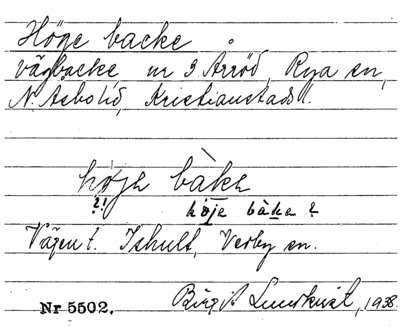 Höge backe
vägbacke nr 3 Årröd, Rya sn,
N. Åsbo hd, Kristianstads l.
høje bàke
?! høje bàke ?
Vägen t. Ishult, Verby sn.
Birgit Lundkvist, 1938.
Nr 5502.